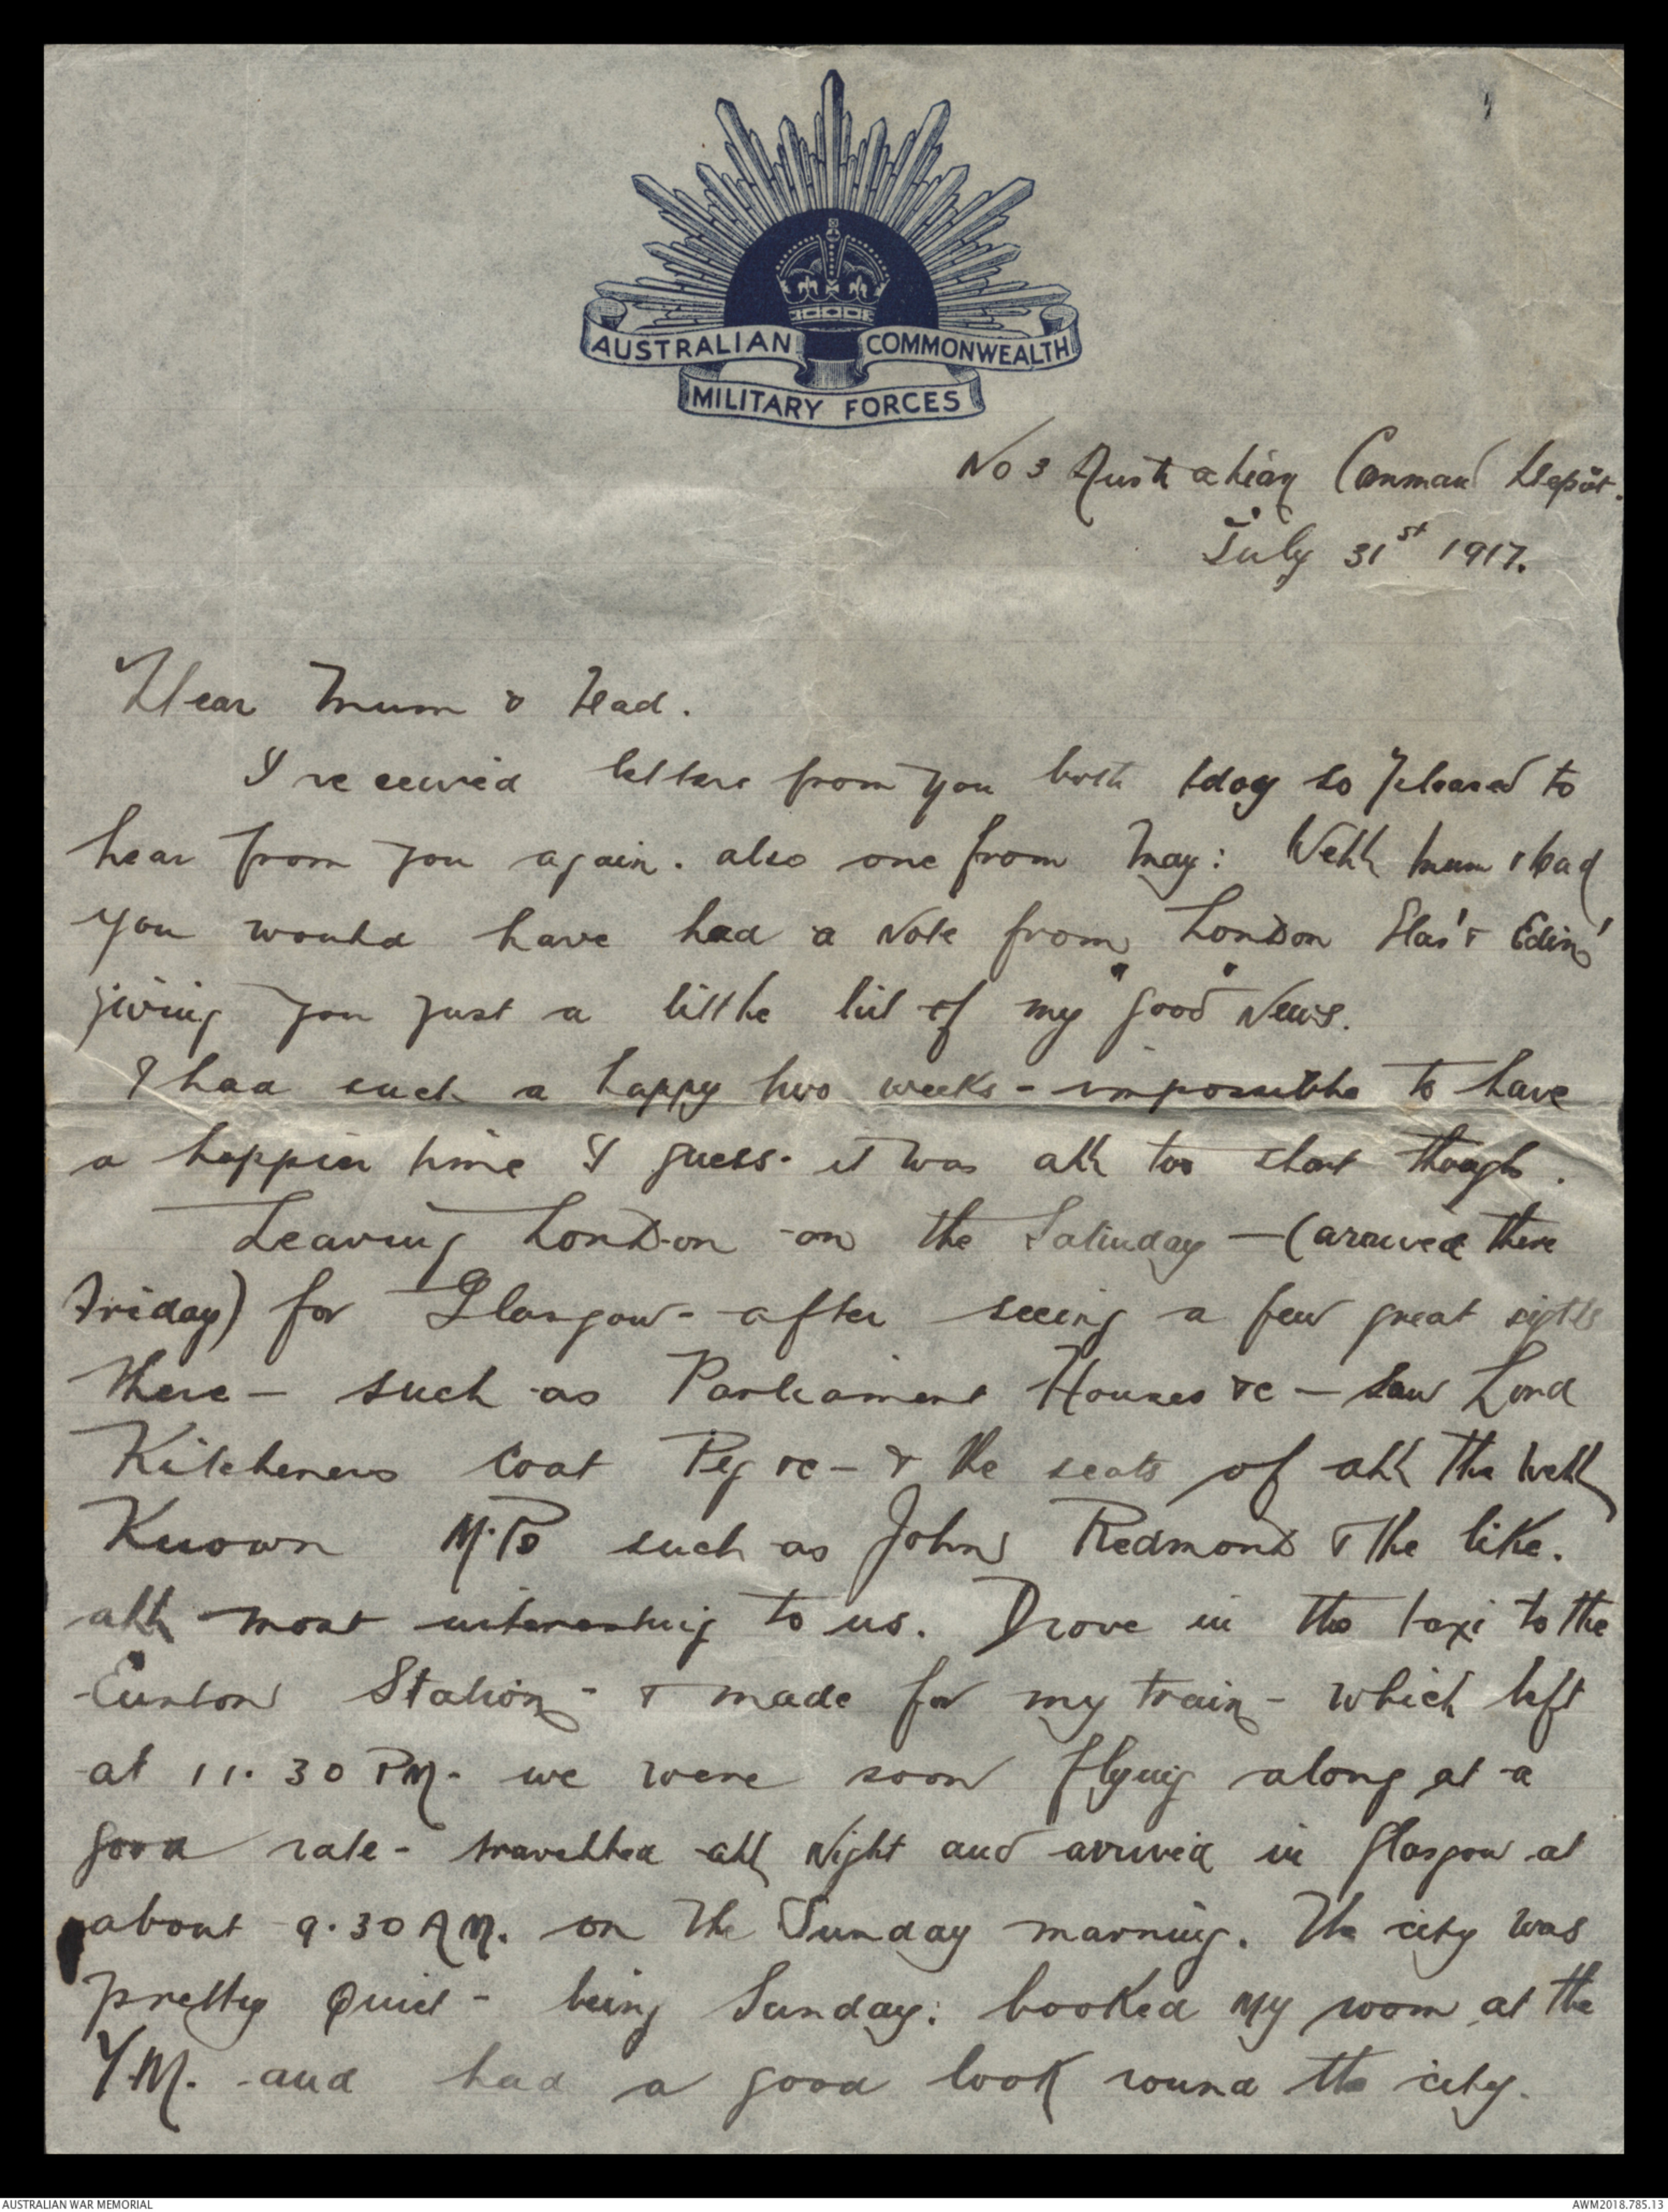 AUSTRALIAN COMMONWEALTH
MILITARY FORCES
No 3 Australian Command Depôt.
July 31st 1917.
Dear Mum & Dad.
I received letters from you both tday so pleased to
hear from you again. also one from May: Well Mum & Dad
you would have had a note from London Glas' & Edin'
giving you just a little bit of my "good" News.
I had such a happy two weeks - impossible to have
a happier time I guess. it was all too short though.
Leaving London on the Saturday - (arrived there
Friday) for Glasgow - after seeing a few great sights
there - such as Parliament Houses &c - saw Lord
Kitcheners Coat Peg &c - & the seats of all the well
Known M.Ps such as John Redmond & the like.
all most interesting to us. Drove in the taxi to the
Euston Station - & made for my train - which left
at 11.30 PM. we were soon flying along at a
good rate - travelled all Night and arrived in Glasgow at
about 9.30 AM. on the Sunday morning. The city was
pretty Quiet - being Sunday: booked my room at the
Y.M. and had a good look round the city.
AUSTRALIAN WAR MEMORIAL
AWM2018.785.13